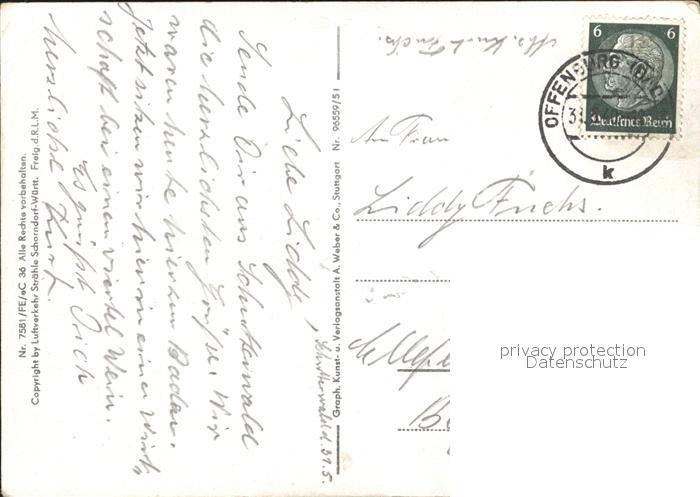 Schutterwald d. 31.5.
Liebe Liddy!
Sende Dir aus Schutterwald
die herzlichsten Grüße. Wir
waren heute hier zum Baden.
Jetzt sitzen wir hier in einer Wirt-
schaft bei einem viertel Wein.
Es grüßt Dich
herzlichst Kurt.
Nr. 7581/FE/eC 36 Alle Rechte vorbehalten.
Copyright by Luftverkehr Strähle Schorndorf-Württ. Freig.d.R.L.M.
Graph. Kunst- u. Verlagsanstalt A. Weber & Co., Stuttgart Nr. 96559/51
Abs. Kurt Fuchs.
6 6
Deutsches Reich
OFFENBURG (BAD)
k
An Frau
Liddy Fuchs.
privacy protection
Datenschutz